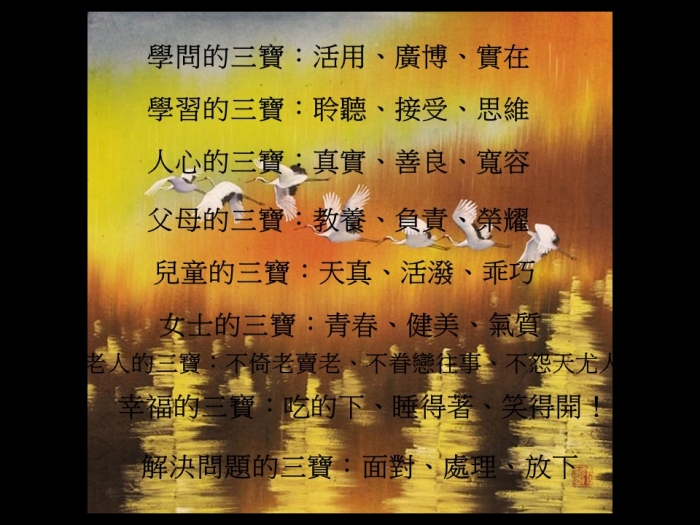 學問的三寶：活用、廣博、實在
學習的三寶：聆聽、接受、思維
人心的三寶：真實、善良、寬容
父母的三寶：教養、負責、榮耀
兒童的三寶：天真、活潑、乖巧
女士的三寶：青春、健美、氣質
老人的三寶：不倚老賣老、不眷戀往事、不怨天尤人
幸福的三寶：吃的下、睡得著、笑得開！
解決問題的三寶：面對、處理、放下